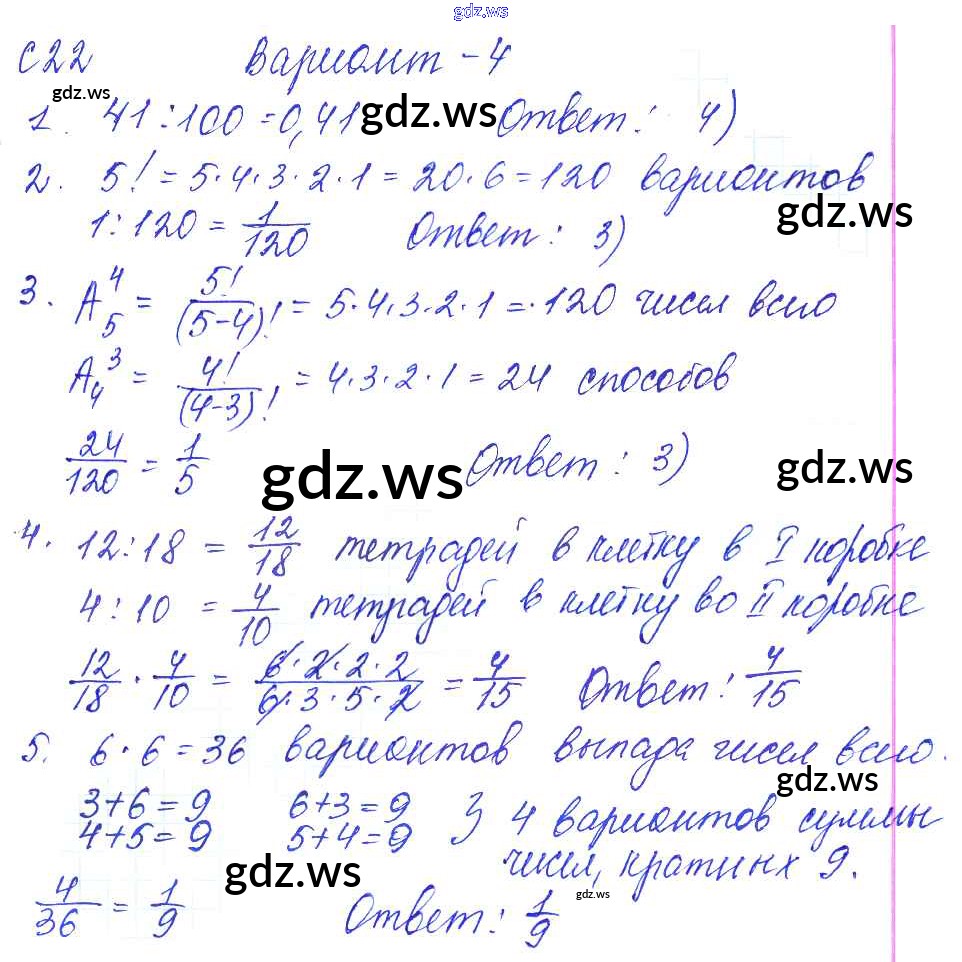 gdz.ws
С22 Вариант - 4
gdz.ws
1. 41 : 100 = 0,41 gdz.ws Ответ: 4)
2. 5! = 5·4·3·2·1 = 20·6 = 120 вариантов
gdz.ws
1 : 120 = 1/120 Ответ: 3)
3. A₅⁴ = 5!/(5-4)! = 5·4·3·2·1 = 120 чисел всего
A₄³ = 4!/(4-3)! = 4·3·2·1 = 24 способов
24/120 = 1/5 gdz.ws Ответ: 3) gdz.ws
4. 12 : 18 = 12/18 тетрадей в клетку в I коробке
4 : 10 = 4/10 тетрадей в клетку во II коробке
12/18 · 4/10 = 6·2·2·2/6·3·5·2 = 4/15 Ответ: 4/15
5. 6·6 = 36 вариантов выпада чисел всего.
gdz.ws
3+6=9 6+3=9 } 4 вариантов суммы
4+5=9 5+4=9 чисел, кратных 9.
gdz.ws
gdz.ws
4/36 = 1/9 Ответ: 1/9